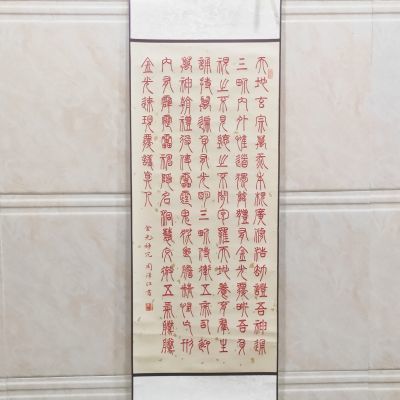 天地玄宗萬炁本根廣修浩劫證吾神通
三界內外惟道獨尊體有金光覆映吾身
視之不見聽之不聞包羅天地養育群生
誦持萬遍身有光明三界侍衛五帝司迎
萬神朝禮役使雷霆鬼妖喪膽精怪忘形
內有霹靂雷神隱名洞慧交徹五炁騰騰
金光速現覆護真人
金光神咒